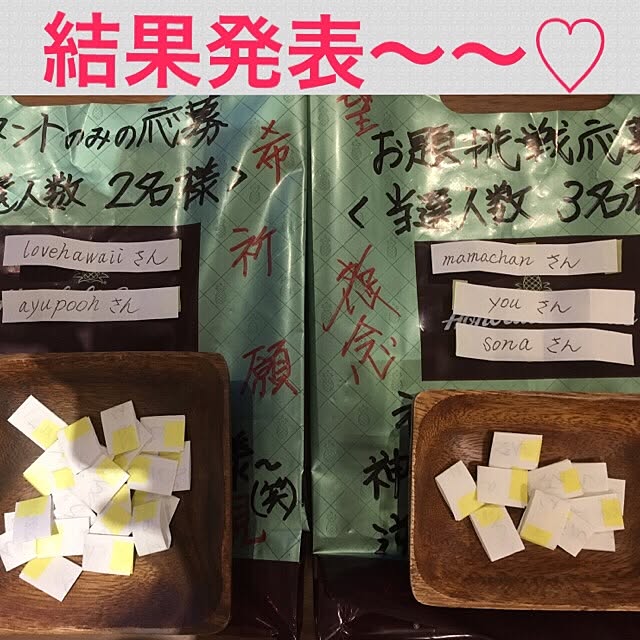 結果発表〜〜♡
メントのみの応募
選人数 2名様>
lovehawaii さん
ayupooh さん
希
祈
願
(笑)
望
お題 挑戦応募
<当選人数 3名様
mamachan さん
you さん
sona さん
念
神